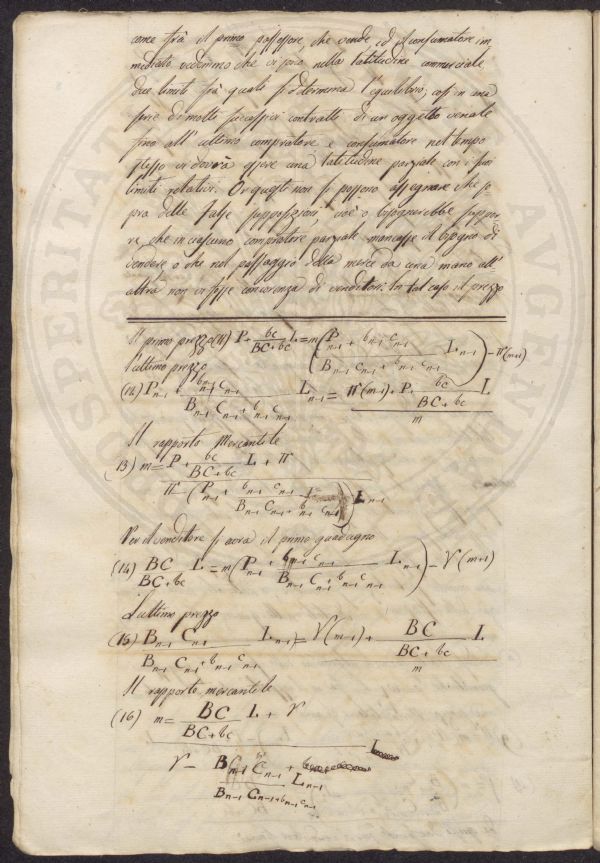 come frà il primo possessore, che vende ed il consumatore im
mediato vedemmo che vi sono nella latitudine commerciale
due limiti frà quali si determina l'equilibrio; così in una
serie di molti successivi contratti di un oggetto venale
fino all'ultimo compratore e consumatore nel tempo
stesso vi dovrà essere una latitudine parziale con i suoi
limiti relativi. Or questi non si possono assegnare che so
pra delle false supposizioni, cioè o bisognerebbe suppor
re, che in ciascuno compratore parziale mancasse il bisogno di
vendere, o che nel passaggio della merce da una mano all'
altra non vi fosse concorenza di venditori. In tal caso il prezzo
Il primo prezzo (11) P + bc/BC+bc L = m (P n-1 + b n-1 c n-1 / B n-1 C n-1 + b n-1 c n-1 L n-1) - π(m+1)
L'ultimo prezzo
(12) P n-1 + b n-1 c n-1 / B n-1 C n-1 + b n-1 c n-1 L n-1 = π(m-1) + P + bc/BC+bc L / m
Il rapporto Mercantile
13) m = P + bc/BC+bc L + π
π - (P n-1 + b n-1 c n-1 / B n-1 C n-1 + b n-1 c n-1) L n-1
Per il venditore si avrà il primo guadagno
(14) BC/BC+bc L = m (P n-1 + b n-1 c n-1 / B n-1 C n-1 + b n-1 c n-1 L n-1) - γ(m+1)
L'ultimo prezzo
(15) B n-1 C n-1 / B n-1 C n-1 + b n-1 c n-1 L n-1 = γ(m-1) + BC/BC+bc L / m
Il rapporto mercantile
(16) m = BC/BC+bc L + γ
γ - B n-1 C n-1 / B n-1 C n-1 + b n-1 c n-1 L n-1